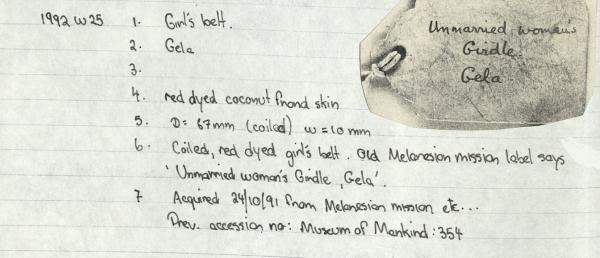 1992 W25 1. Girl's belt.
2. Gela
3.
4. red dyed coconut frond skin
5. D= 67mm (coiled) w=10mm
6. Coiled, red dyed girl's belt. Old Melanesian mission label says
'Unmarried woman's Girdle, Gela'.
7 Acquired 24/10/91 from Melanesian mission etc...
Prev. accession no: Museum of Mankind: 354
Unmarried woman's
Girdle
Gela